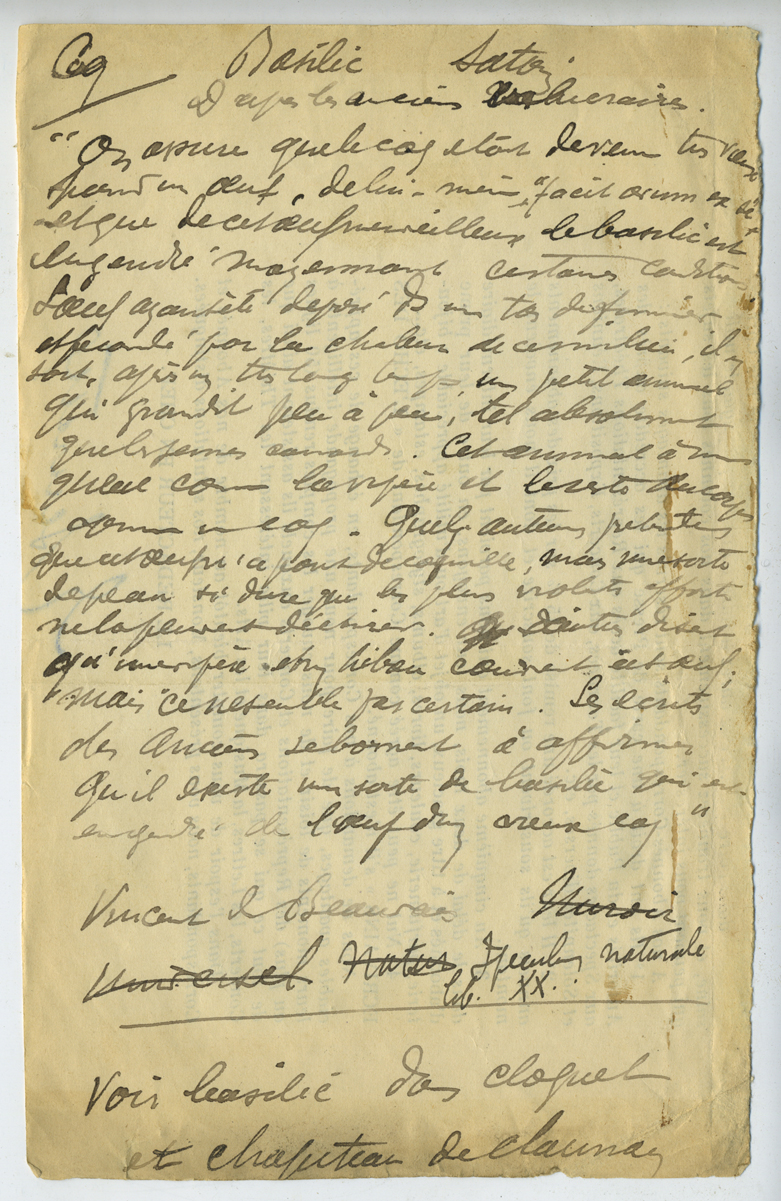 Coq Basilic Satan
D'après les anciens
"On assure que le coq étant devenu très vieux
pond un œuf, de lui-même, "facit ovum ex se"
et que de cet œuf merveilleux le basilic est
engendré moyennant certaines conditions
L'œuf ayant été déposé ds un tas de fumier
est fécondé par la chaleur de ce milieu, il en
sort, après un très long temps, un petit animal
qui grandit peu à peu, tel absolument
que les jeunes canards. Cet animal à une
queue comme la vipère et le reste du corps
comme un coq. Quelq. auteurs prétendent
que cet œuf n'a point de coquille, mais une sorte
de peau si dure que les plus violents efforts
ne la peuvent déchirer. D'autres disent
qu'une vipère couvent cet œuf;
mais ce ne semble pas certain. Les écrits
des Anciens se bornent à affirmer
qu'il existe une sorte de basilic qui est
engendré de l'œuf d'un vieux coq"
Vincent de Beauvais Miroir
Universel Natur Speculum naturale
lib. XX.
Voir basilic dans cloquet
et chapiteau de